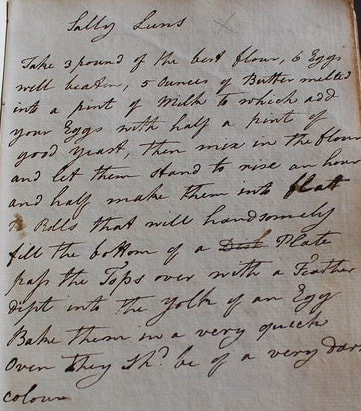 Sally Luns
Take 3 pound of the best flour, 6 Eggs
well beaten, 5 Ounces of Butter melted
into a pint of Milk to which add
your Eggs with half a pint of
good Yeast, then mix in the flour
and let them stand to rise an hour
and half make them into flatt
Rolls that will handsomely
fill the bottom of a Dish Plate
pass the Tops over with a Feather
dipt into the yolk of an Egg
Bake them in a very quick
Oven they Shd. be of a very dark
colour